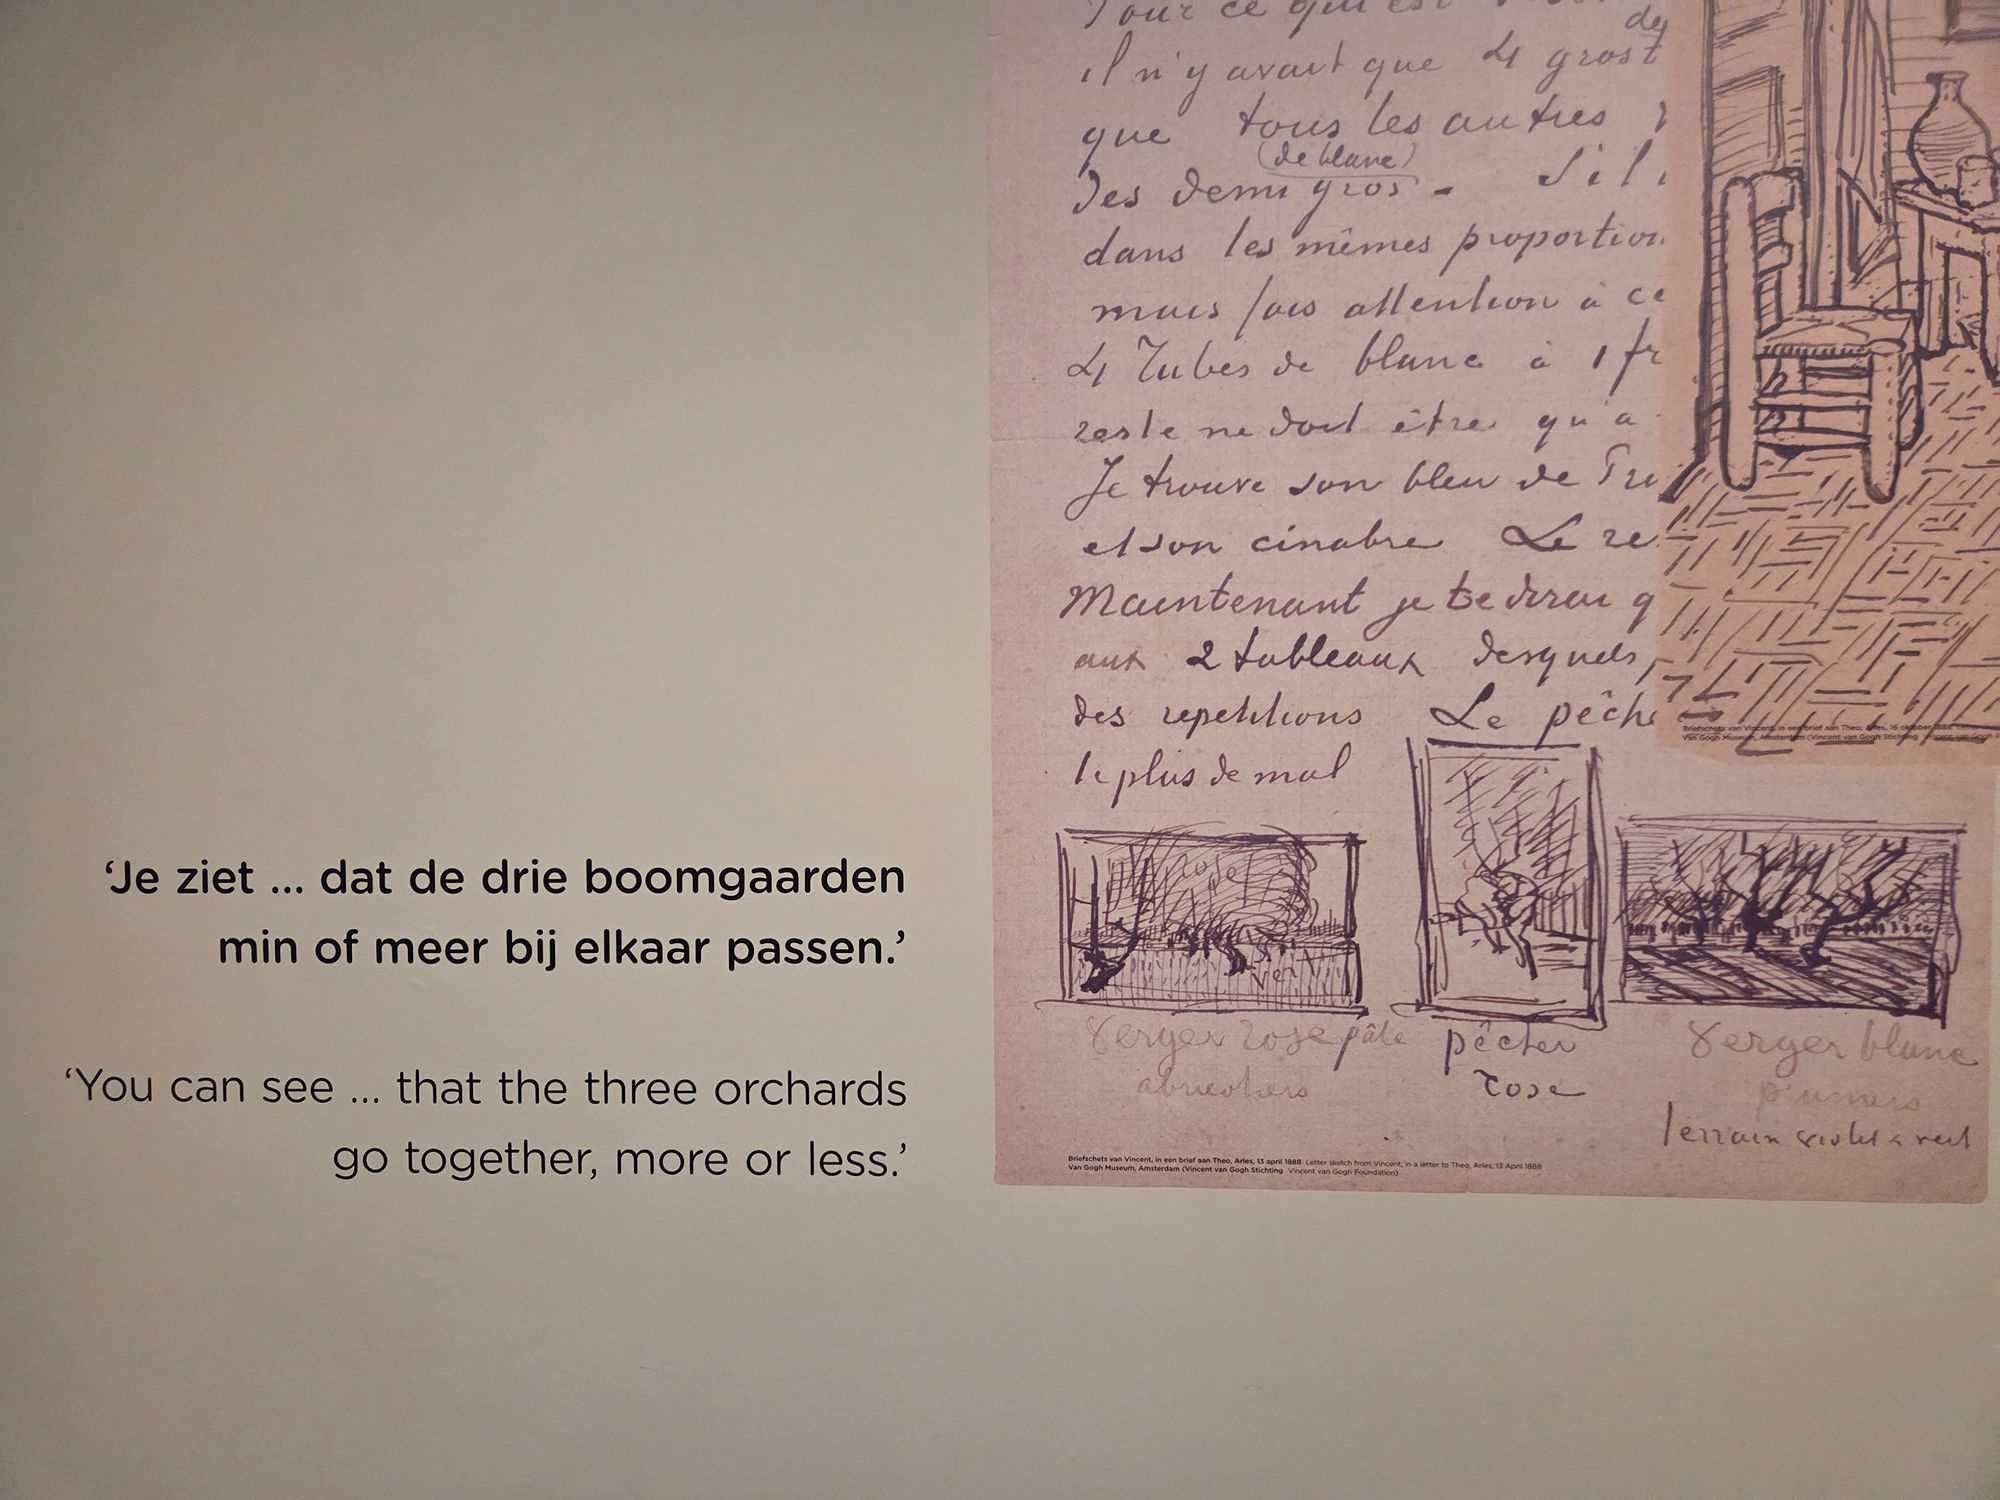 ‘Je ziet ... dat de drie boomgaarden
min of meer bij elkaar passen.’
‘You can see ... that the three orchards
go together, more or less.’
Pour ce qui est
des
il n'y avait que 4 gros t
que tous les autres
(de blanc)
des demi gros - S'il
dans les mêmes proportion
mais fais attention à ce
4 Tubes de blanc à 1 fr
reste ne doit être qu'a
Je trouve son bleu de Pru
et son cinabre Le re
Maintenant je te dirai q
aux 2 tableaux desquels
des repetitions Le pêche
le plus de mal
rose
vert
verger rose pâle
abricotiers
pêcher
rose
verger blanc
pruniers
terrain violet & vert
Briefschets van Vincent, in een brief aan Theo, Arles, 13 april 1888 Letter sketch from Vincent, in a letter to Theo, Arles, 13 April 1888
Van Gogh Museum, Amsterdam (Vincent van Gogh Stichting Vincent van Gogh Foundation)
Briefschets van Vincent, in een brief aan Theo, Arles, 16 oktober 1888
Van Gogh Museum, Amsterdam (Vincent van Gogh Stichting Vincent van Gogh